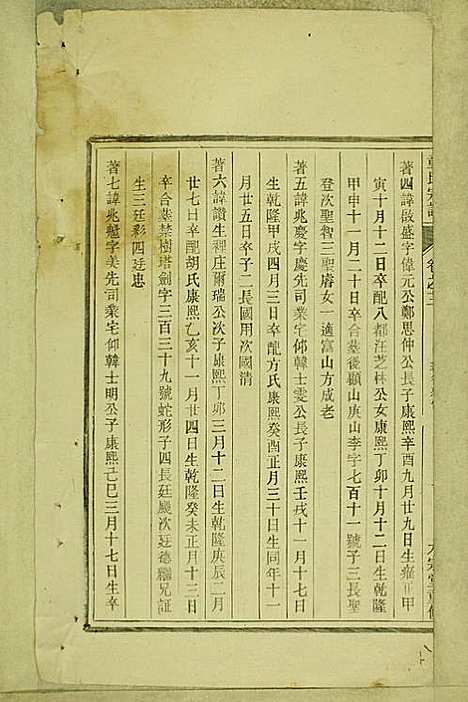 著四諱啟盛字偉元公鄭思仲公長子康熙辛酉九月廿九日生雍正甲
寅十月十二日卒配八都汪芝林公女康熙丁卯十月十二日生乾隆
甲申十一月二十日卒合墓後顧山庚山李字七百十一號子三長聖
登次聖智三聖睿女一適富山方成老
著五諱兆慶字慶先司業宅仰韓士雯公長子康熙壬戌十一月十七日
生乾隆甲戌四月三日卒配方氏康熙癸酉正月三十日生同年十一
月廿五日卒子二長國用次國清
著六諱讚生裡庄爾瑞公次子康熙丁卯三月十二日生乾隆庚辰二月
廿七日卒配胡氏康熙乙亥十一月廿四日生乾隆癸未正月十三日
卒合墓禁樹塔劍字三百三十九號蛇形子四長廷颺次廷德繼兄証
生三廷彩四廷忠
著七諱兆魁字美先司業宅仰韓士明公子康熙己巳三月十七日生卒